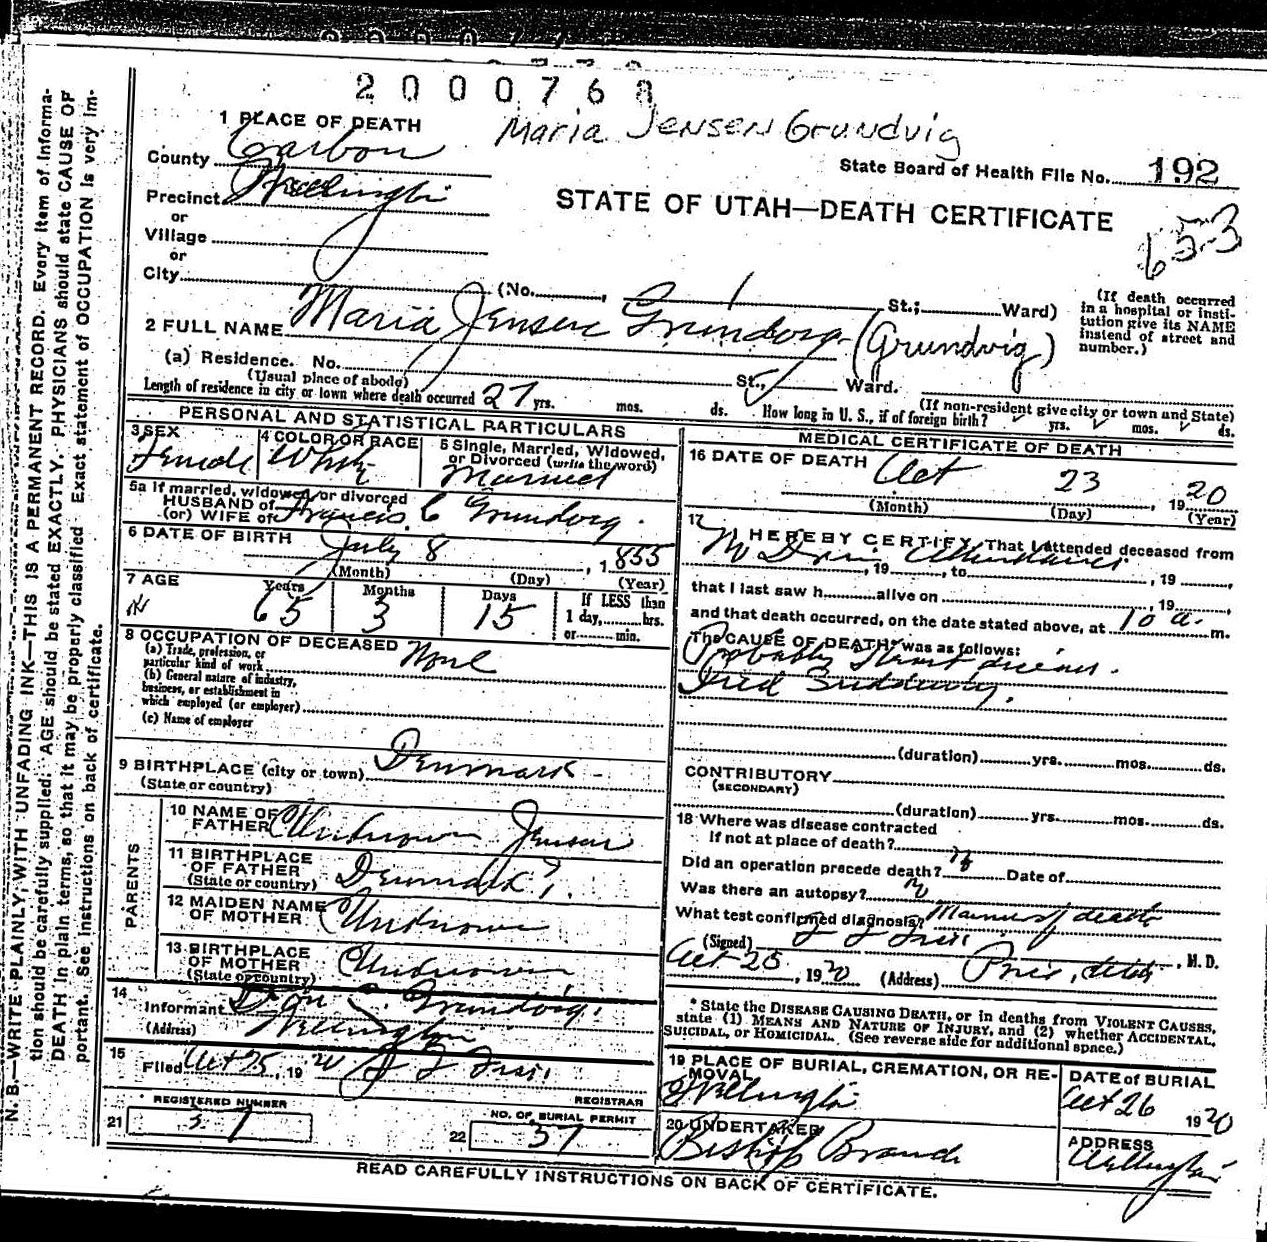 2000768
Maria Jensen Grundvig
1 PLACE OF DEATH
County Carbon
State Board of Health File No. 192
Precinct Wellington
STATE OF UTAH—DEATH CERTIFICATE
653
or
Village
or
City (No. , St.; Ward)
(If death occurred in a hospital or institution give its NAME instead of street and number.)
2 FULL NAME Maria Jensen Grundvig (Grundvig)
(a) Residence. No. St., Ward.
(Usual place of abode)
(If non-resident give city or town and State)
Length of residence in city or town where death occurred 27 yrs. mos. ds. How long in U. S., if of foreign birth? yrs. mos. ds.
PERSONAL AND STATISTICAL PARTICULARS
3 SEX Female
4 COLOR OR RACE White
5 Single, Married, Widowed, or Divorced (write the word) Married
5a If married, widowed, or divorced
HUSBAND of
(or) WIFE of Francis C Grundvig
6 DATE OF BIRTH July 8, 1855
(Month) (Day) (Year)
7 AGE Years 65 Months 3 Days 15
If LESS than
1 day, hrs.
or min.
8 OCCUPATION OF DECEASED None
(a) Trade, profession, or
particular kind of work
(b) General nature of industry,
business, or establishment in
which employed (or employer)
(c) Name of employer
9 BIRTHPLACE (city or town) Denmark
(State or country)
PARENTS
10 NAME OF FATHER Unknown Jensen
11 BIRTHPLACE OF FATHER (State or country) Denmark ?
12 MAIDEN NAME OF MOTHER Unknown
13 BIRTHPLACE OF MOTHER (State or country) Unknown
14 Informant Grundvig
(Address) Wellington
15 Filed Oct 25, 1920
REGISTRAR
REGISTERED NUMBER
21 37
NO. OF BURIAL PERMIT
22 37
MEDICAL CERTIFICATE OF DEATH
16 DATE OF DEATH Oct 23 1920
(Month) (Day) (Year)
17 I HEREBY CERTIFY, That I attended deceased from
No Attendance
, 19 , to , 19 ,
that I last saw h alive on , 19 ,
and that death occurred, on the date stated above, at 10 a. m.
The CAUSE OF DEATH* was as follows:
Probably Heart disease.
Died Suddenly.
(duration) yrs. mos. ds.
CONTRIBUTORY
(SECONDARY)
(duration) yrs. mos. ds.
18 Where was disease contracted
if not at place of death?
Did an operation precede death? No Date of
Was there an autopsy? No
What test confirmed diagnosis? Manner of death
(Signed) , M. D.
Oct 25, 1920 (Address) Price, Utah
* State the DISEASE CAUSING DEATH, or in deaths from VIOLENT CAUSES,
state (1) MEANS AND NATURE OF INJURY, and (2) whether ACCIDENTAL,
SUICIDAL, or HOMICIDAL. (See reverse side for additional space.)
19 PLACE OF BURIAL, CREMATION, OR REMOVAL
Wellington
DATE of BURIAL
Oct 26 1920
20 UNDERTAKER
Bishop Branch
ADDRESS
Wellington
READ CAREFULLY INSTRUCTIONS ON BACK OF CERTIFICATE.
N. B.—WRITE PLAINLY, WITH UNFADING INK—THIS IS A PERMANENT RECORD. Every item of informa-
tion should be carefully supplied. AGE should be stated EXACTLY. PHYSICIANS should state CAUSE OF
DEATH in plain terms, so that it may be properly classified. Exact statement of OCCUPATION is very im-
portant. See instructions on back of certificate.